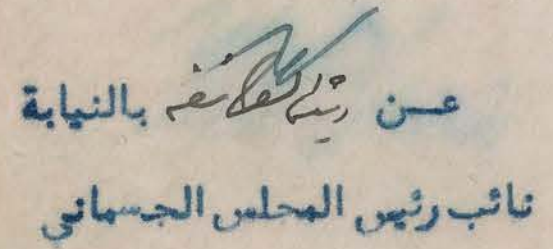 عن رئيس الطائفه بالنيابة
نائب رئيس المجلس الجسماني